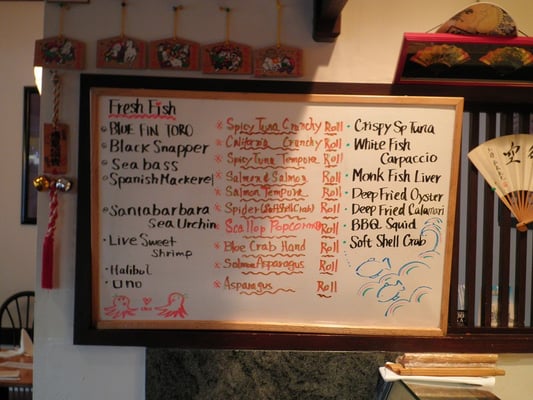 Fresh Fish
BLUE FIN TORO
Black Snapper
Seabass
Spanish Mackerel
Santabarbara
Sea Urchin
Live Sweet
Shrimp
Halibut
uno
Spicy Tuna Crunchy Roll
California Crunchy Roll
Spicy Tuna Tempura Roll
Salmon & Salmon Roll
Salmon Tempura Roll
Spider (Soft Shell Crab) Roll
Scallop Popcorn Roll
Blue Crab Hand Roll
Salmon Asparagus Roll
Asparagus Roll
Crispy Sp Tuna
White Fish
Carpaccio
Monk Fish Liver
Deep Fried Oyster
Deep Fried Calamari
BBQ Squid
Soft Shell Crab